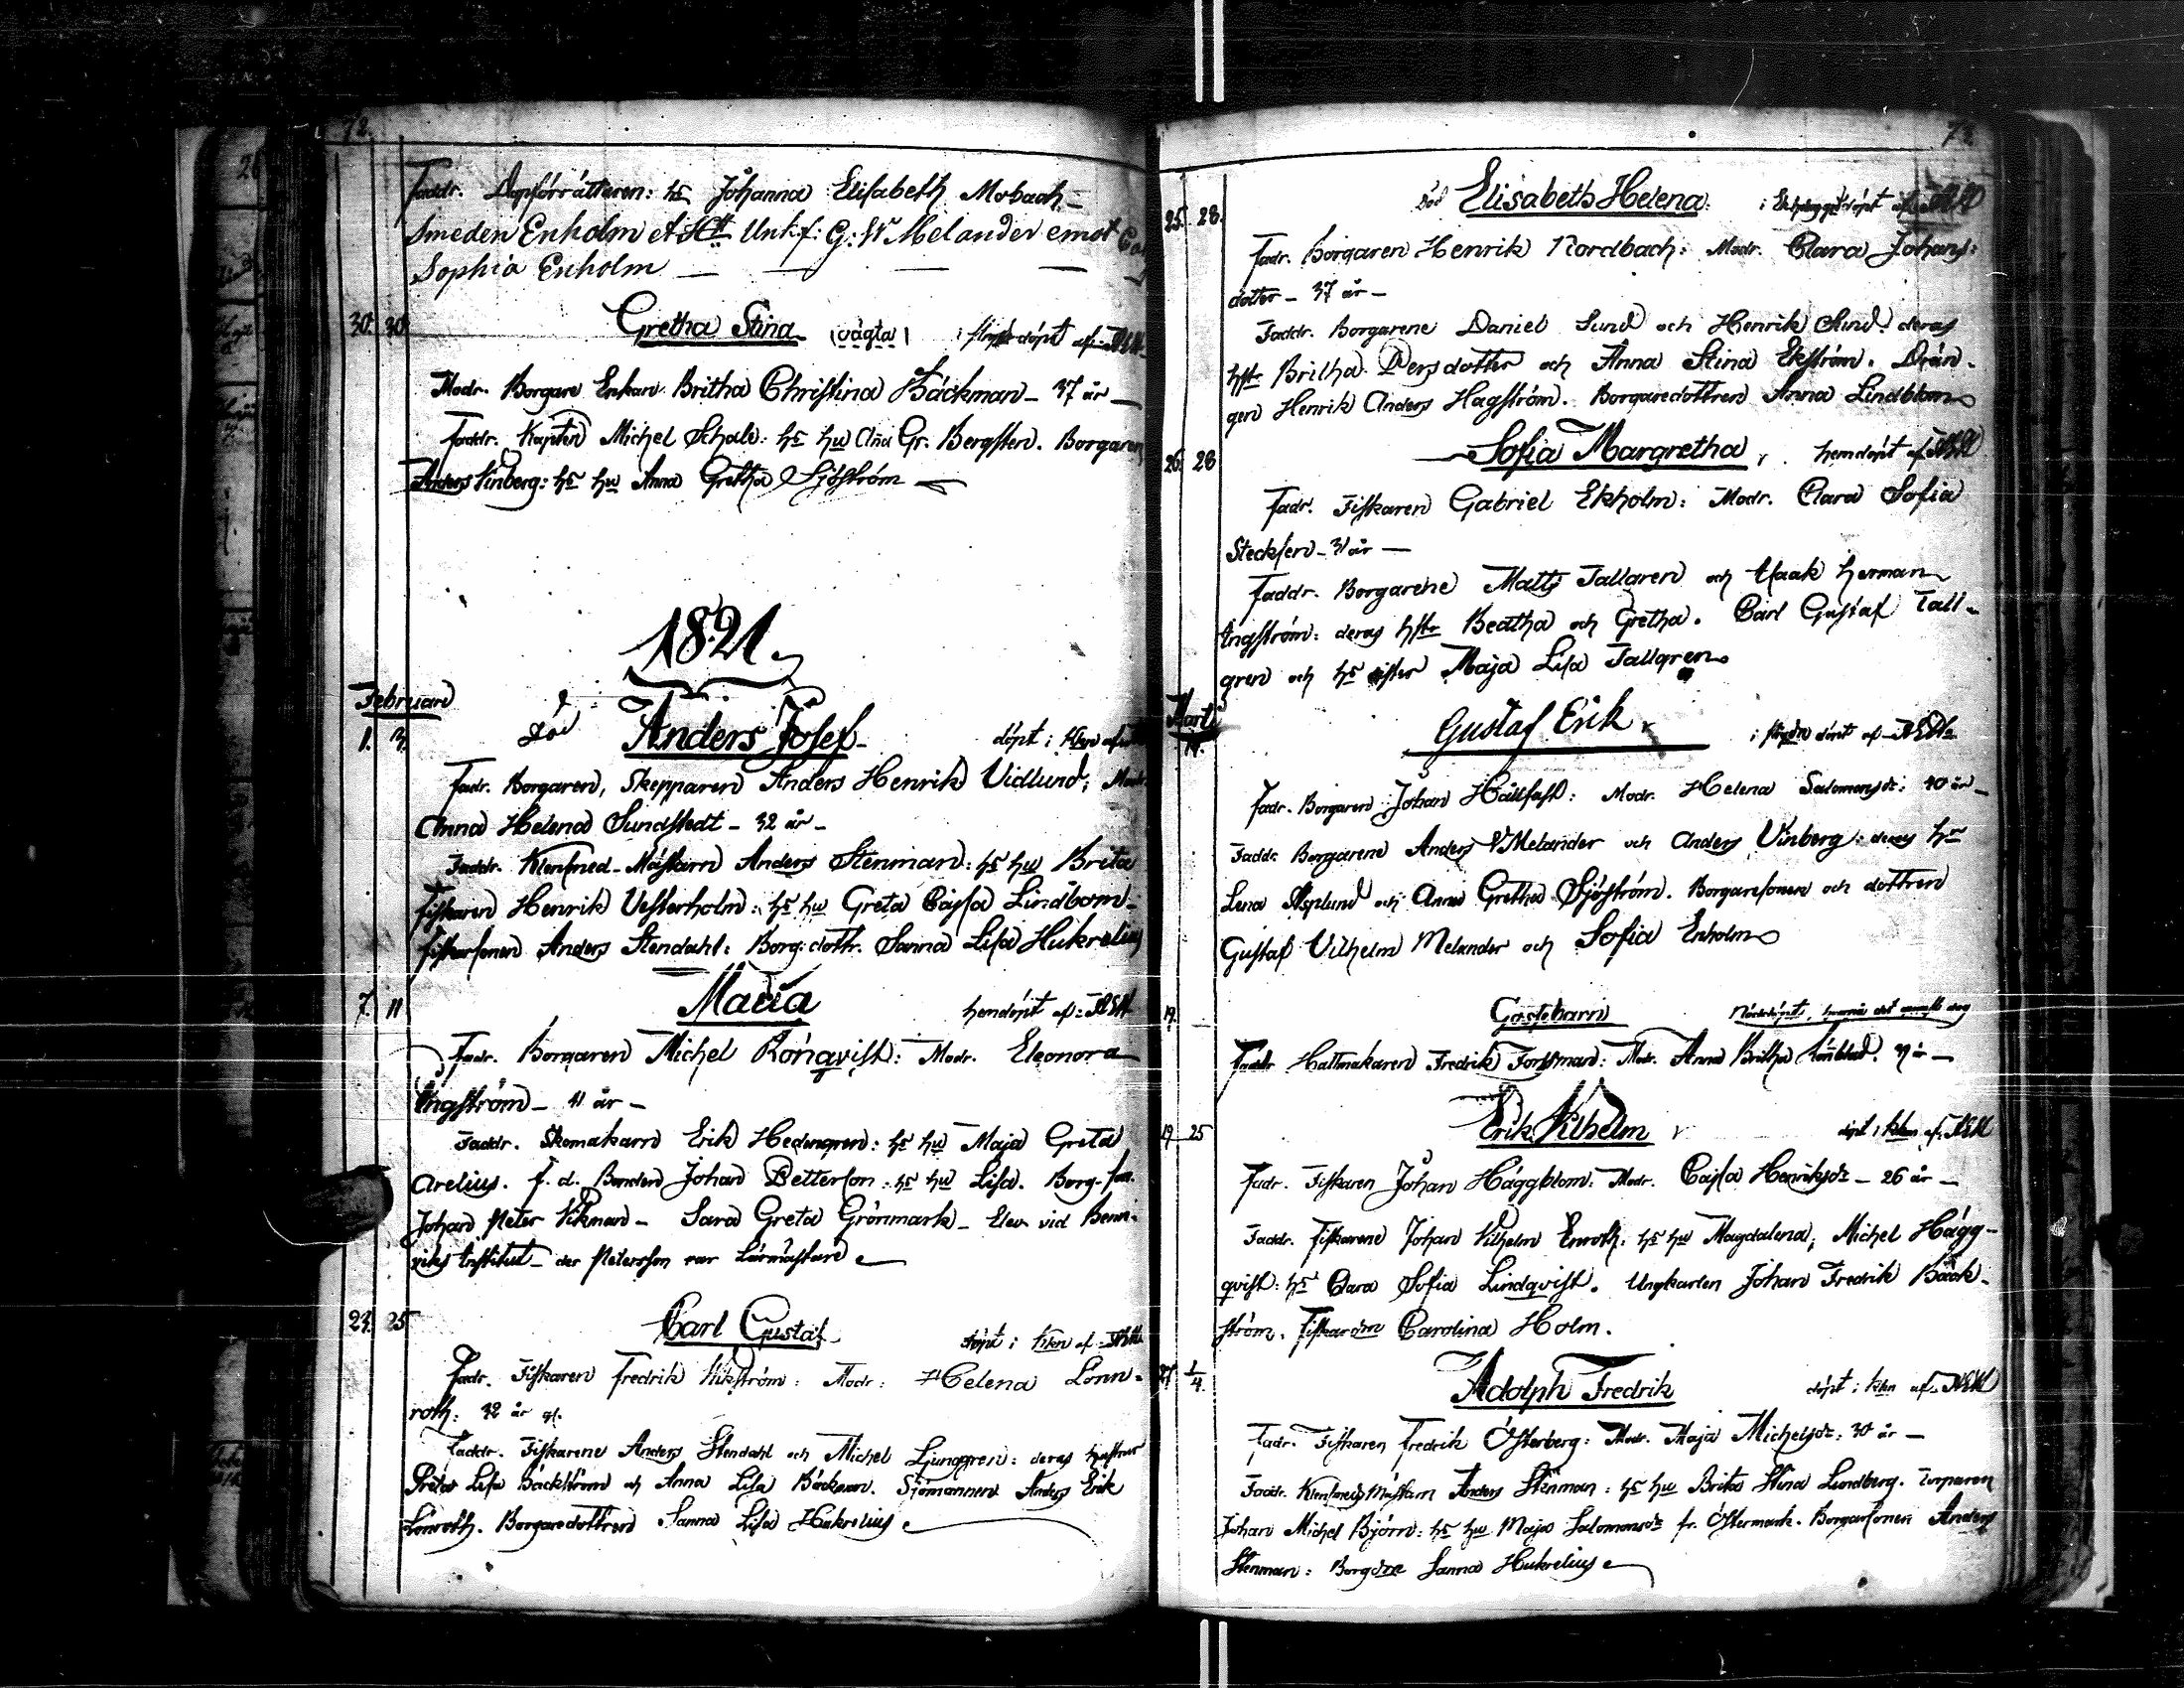 72.
Faddr. Dopförrättaren: hs Johanna Elisabeth Mobach –
Smeden Enholm et Htt Unk:f: G: W Melander emot
Sophia Enholm
30. 30. Gretha Stina (oägta) döpt af
Modr. Borgare Enkan Britha Christina Bäckman – 37 år –
Faddr. Kapten Michel Schale: hs hu Ana Gr. Bergsten. Borgaren
Anders Vinberg: hs hu Anna Gretha Sjöström
1821.
Februari
1. 3. död Anders Josef döpt i
Fadr. Borgaren, Skepparen Anders Henrik Vidlund; Modr.
Anna Helena Sundstedt – 32 år –
Faddr. Klensmed-Mästarn Anders Stenman: hs hu Brita
Fiskaren Henrik Vesterholm: hs hu Greta Cajsa Lindbom –
Fiskarsonen Anders Stendahl: Borg: dottr. Sanna Lisa Hukrelius
7. 11 Maria hemdöpt af
Fadr. Borgaren Michel Rönqvist: Modr. Eleonora
Ingström – 41 år –
Faddr. Skomakarn Erik Hedengren: hs hu Maja Greta
Arelius. f. d. Bonden Johan Petterson: hs hu Lisa. Borg. son.
Johan Peter Vikman – Sara Greta Grönmark – Elev vid
Institut – der Peterson var Lärmästare
23. 25 Carl Gustaf döpt i kkn af
Fadr. Fiskaren Fredrik Vikström: Modr: Helena Lönn-
roth: 32 år gl.
Faddr. Fiskarene Anders Stendahl och Michel Ljungqren: deras hustrur
Greta Lisa Bäckström och Anna Lisa Bäckman. Sjömannen Anders Erik
Lönroth. Borgaredottren Sanna Lisa Hukrelius
73
25. 28. död Elisabeth Helena döpt af
Fadr. Borgaren Henrik Nordbach: Modr. Clara Johans:
dotter – 37 år –
Faddr. Borgarene Daniel Sund och Henrik Sund: deras
hstr Britha Persdotter och Anna Stina Ekström. Drän-
gen Henrik Anders Hagström. Borgaredottren Anna Lindblom
26. 28 Sofia Margretha hemdöpt af
Fadr. Fiskaren Gabriel Ekholm: Modr. Clara Sofia
Stecksen – 31 år –
Faddr. Borgarene Matts Tallgren och Isaak Herman
Ingström: deras hstr Beatha och Gretha. Carl Gustaf Tall-
gren och hs sister Maja Lisa Tallgren
Marti
14. Gustaf Erik döpt af
Fadr. Borgaren Johan Hållfast: Modr. Helena Salomonsdr: 40 år –
Faddr. Borgarene Anders V Melander och Anders Vinberg: deras hr
Lena Asplund och Anna Gretha Sjöström. Borgaresonen och dottren
Gustaf Vilhelm Melander och Sofia Enholm
19. Gossebarn
Fadr Hattmakaren Fredrik Forssman: Modr. Anna Britha
19 25 Erik Vilhelm döpt i kkn af
Fadr. Fiskaren Johan Häggblom: Modr. Cajsa Henriksdr – 26 år –
Faddr. Fiskarene Johan Vilhelm Enroth: hs hu Magdalena; Michel Hägg-
qvist: hs Clara Sofia Lindqvist. Ungkarlen Johan Fredrik Bäck-
ström. Fiskardtr Carolina Holm.
27 1/4 Adolph Fredrik döpt i kkn af
Fadr. Fiskaren Fredrik Österberg: Modr. Maja Michelsdr: 30 år –
Faddr. Klensmeds Mästarn Anders Stenman: hs hu Brita Stina Lundberg. Torparen
Johan Michel Björn: hs hu Maja Salomonsdr fr. Östermark. Borgarsonen Anders
Stenman: Borgdre Sanna Hukrelius